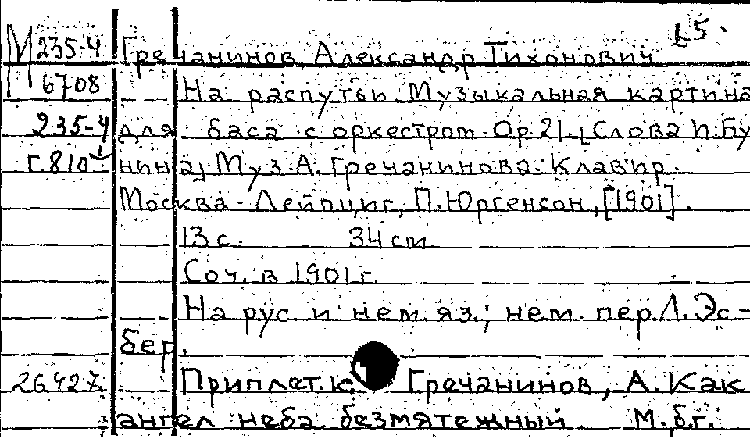 L5.
М235-4 Гречанинов, Александр Тихонович
6708 На распутьи. Музыкальная картина
235-4 для баса с оркестром. Ор.21. Слова И.Бу
Г.810 нина, Муз. А. Гречанинова. Клавир.
Москва - Лейпциг, П.Юргенсон, [1901].
13 с. 34 cm
Соч. в 1901 г.
На рус. и нем. яз.; нем. пер. Л. Эс-
бер.
26427 Приплет. к Гречанинов, А. Как
ангел неба безмятежный М. б.г.